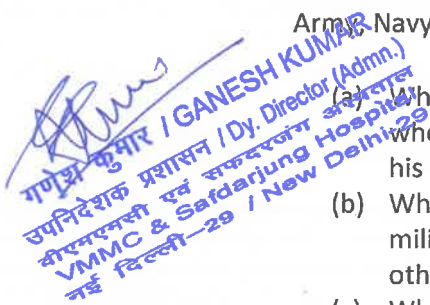 Army, Navy
(a) Wh
whe
his
(b) Wh
mili
oth
गणेश कुमार / GANESH KUMAR
उपनिदेशक प्रशासन / Dy. Director (Admn.)
वीएमएमसी एवं सफदरजंग अस्पताल
VMMC & Safdarjung Hospital
नई दिल्ली–29 / New Delhi-29